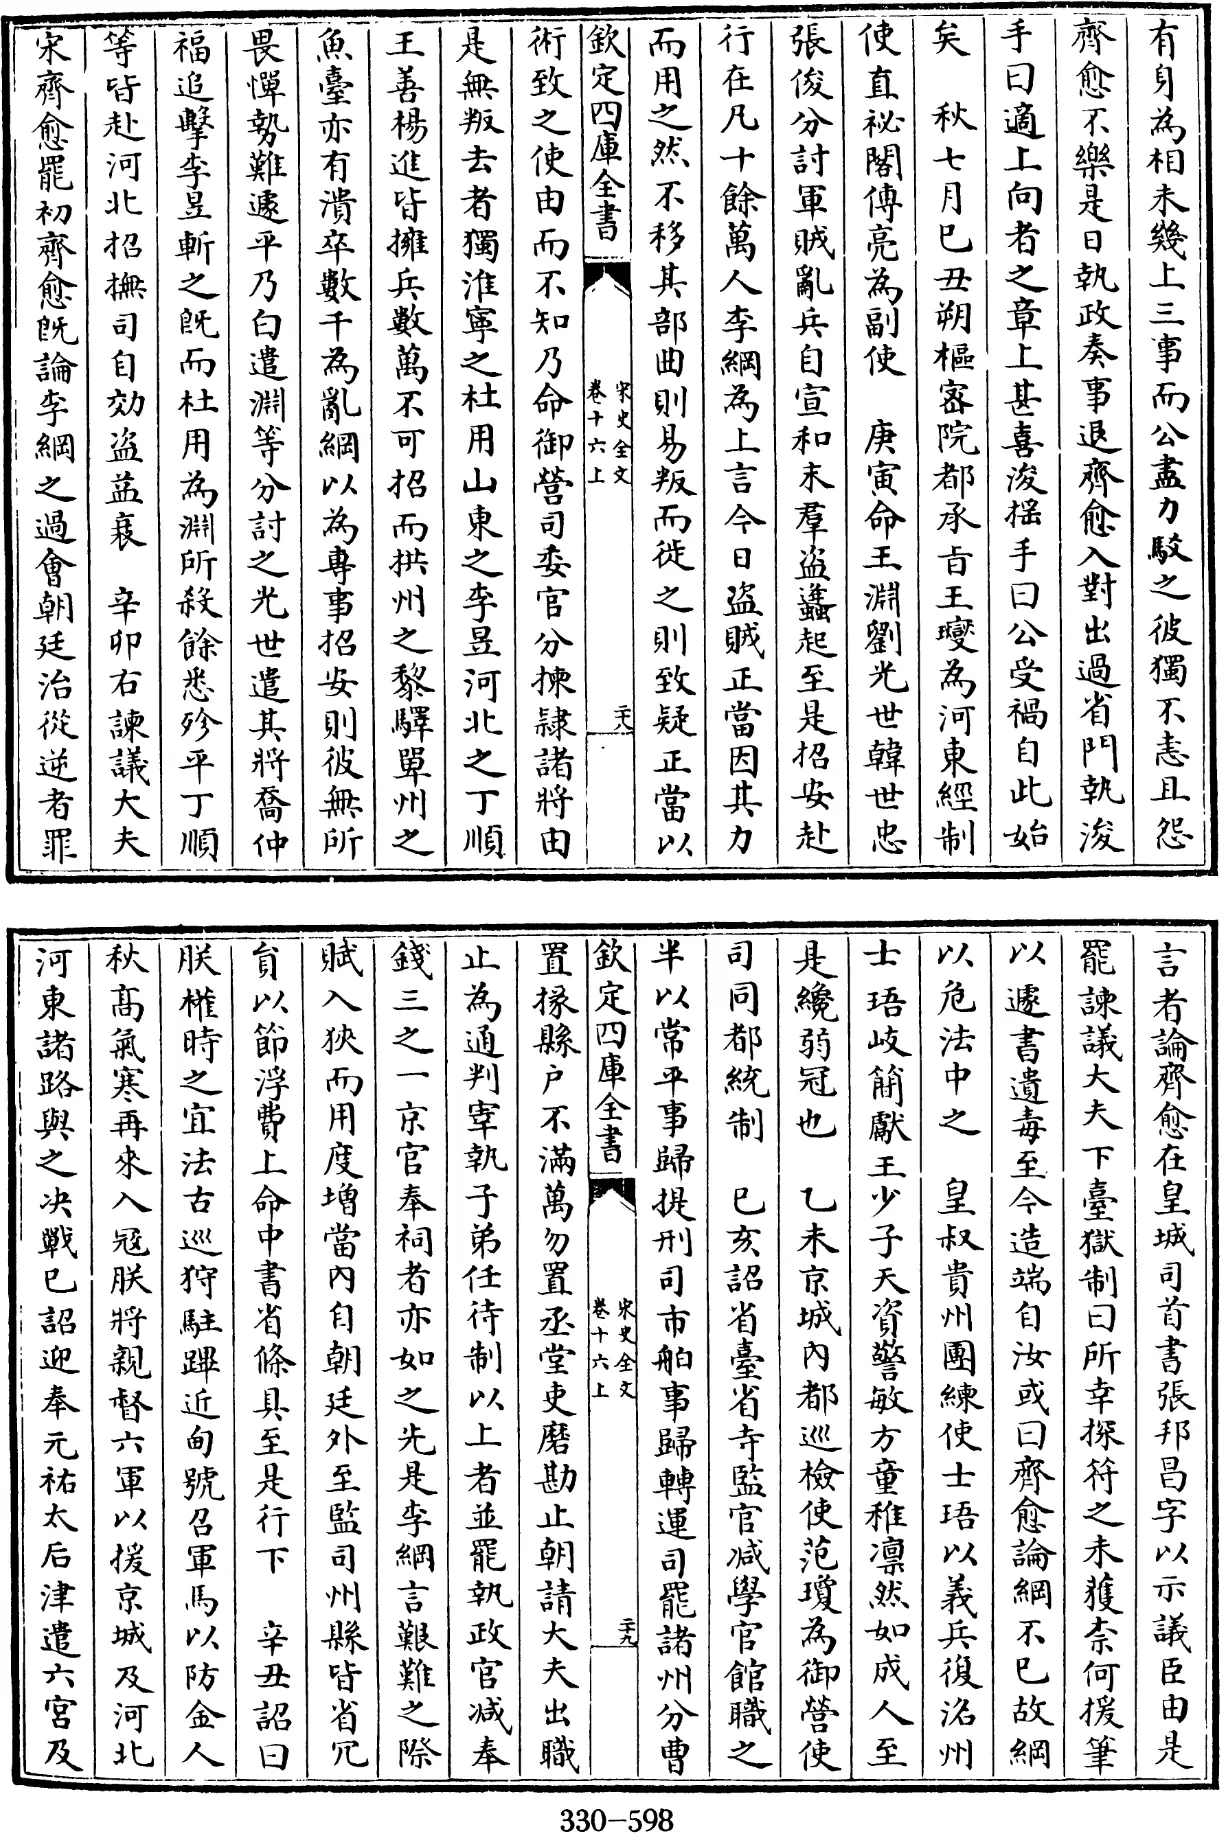 有身為相未幾上三事而公盡力駁之彼獨不恚且怨
齊愈不樂是日執政奏事退齊愈入對出過省門執浚
手曰適上向者之章上甚喜浚揺手曰公受禍自此始
矣　秋七月己丑朔樞密院都承㫖王𤫙為河東經制
使直祕閣傅亮為副使　庚寅命王淵劉光世韓世忠
張俊分討軍賊亂兵自宣和末羣盜蠭起至是招安赴
行在凡十餘萬人李綱為上言今日盜賊正當因其力
而用之然不移其部曲則易叛而徙之則致疑正當以
欽定四庫全書
宋史全文
卷十六上
二十八
術致之使由而不知乃命御營司委官分揀隷諸將由
是無叛去者獨淮寧之杜用山東之李昱河北之丁順
王善楊進皆擁兵數萬不可招而拱州之黎驛單州之
魚臺亦有潰卒數千為亂綱以為專事招安則彼無所
畏憚勢難遽平乃白遣淵等分討之光世遣其將喬仲
福追擊李昱斬之旣而杜用為淵所殺餘悉殄平丁順
等皆赴河北招撫司自効盜益衰　辛卯右諫議大夫
宋齊愈罷初齊愈旣論李綱之過會朝廷治從逆者罪
言者論齊愈在皇城司首書張邦昌字以示議臣由是
罷諫議大夫下臺獄制曰所幸探符之未獲柰何援筆
以遽書遺毒至今造端自汝或曰齊愈論綱不已故綱
以危法中之　皇叔貴州團練使士珸以義兵復洺州
士珸岐簡獻王少子天資警敏方童稚凛然如成人至
是纔弱冠也　乙未京城內都巡檢使范瓊為御營使
司同都統制　己亥詔省臺省寺監官减學官館職之
半以常平事歸提刑司市舶事歸轉運司罷諸州分曹
欽定四庫全書
宋史全文
卷十六上
二十九
置掾縣户不滿萬勿置丞堂吏磨勘止朝請大夫出職
止為通判宰執子弟任待制以上者並罷執政官减奉
錢三之一京官奉祠者亦如之先是李綱言艱難之際
賦入狹而用度增當內自朝廷外至監司州縣皆省冗
貟以節浮費上命中書省條具至是行下　辛丑詔曰
朕權時之宜法古巡狩駐蹕近甸號召軍馬以防金人
秋髙氣寒再來入冦朕將親督六軍以援京城及河北
河東諸路與之决戰已詔迎奉元祐太后津遣六宮及
330-598